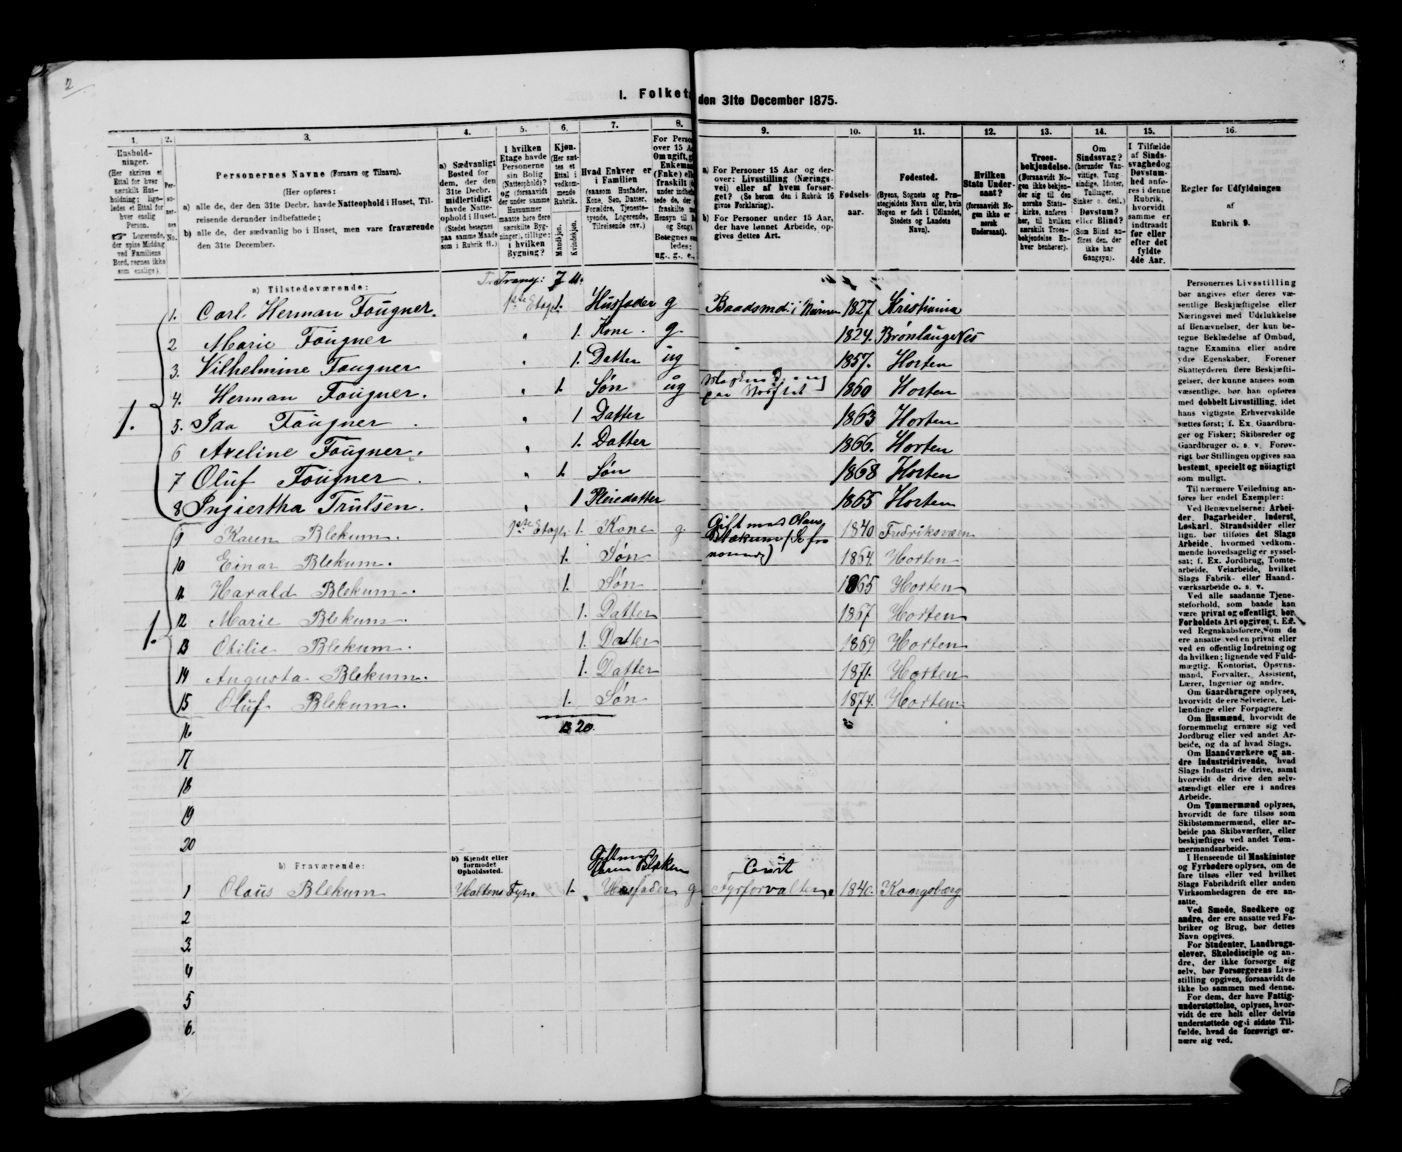 2
I. Folket den 31te December 1875.
1. 2. 3. 4. 5. 6. 7. 8. 9. 10. 11. 12. 13. 14. 15. 16.
Personernes Navne (Fornavn og Tilnavn).
(Her opføres:
a) alle de, der den 31te Decbr. havde Natteophold i Huset, Tilreisende derunder indbefattede;
b) alle de, der sædvanlig bo i Huset, men vare fraværende den 31te December.
a) Sædvanligt Bosted for dem, der den 31te Decbr. midlertidigt havde Natteophold i Huset.
I hvilken Etage havde Personerne sin Bolig
Kjøn.
Mandkjøn. Kvindekjøn.
Hvad Enhver er i Familien (saasom Husfader, Kone, Søn, Datter, Forældre, Tjenestetyende, Logerende, Tilreisende osv.)
a) For Personer 15 Aar og derover: Livsstilling (Næringsvei) eller af hvem forsørget? (Se herom den i Rubrik 16 givne Forklaring).
b) For Personer under 15 Aar, der have lønnet Arbeide, opgives dettes Art.
Fødselsaar.
Fødested.
(Byens, Sognets og Præstegjeldets Navn eller, hvis Nogen er født i Udlandet, Stedets og Landets Navn).
Hvilken Stats Undersaat? (forsaavidt Nogen ikke er norsk Undersaat).
Troesbekjendelse.
Om Sindssvag?
Døvstum?
eller Blind?
I Tilfælde af Sindssvaghed og Døvstumhed anføres i denne Rubrik, hvorvidt samme er indtraadt før eller efter det fyldte 4de Aar.
Regler for Udfyldningen af Rubrik 9.
a) Tilstedeværende:
1. Carl Herman Fougner. 1ste Etage 1. Husfader g Baadsmd: i 1827 Kristiania
2 Marie Fougner " 1. Kone. g. 1824. Brønlaugnes
3. Vilhelmine Fougner " 1. Datter ug 1857. Horten
4. Herman Fougner. 1. Søn ug 1860 Horten
1. 5. Ida Fougner " 1 Datter 1863 Horten
6 Aveline Fougner. " 1. Datter 1866. Horten
7 Oluf Fougner " 1. Søn 1868 Horten
8 Ingiertha Trulsen. " 1 Pleiedatter 1865 Horten
9 Karen Blekum. 1ste Etage 1. Kone g Gift med Olaus Blækum 1840 Fredriksværn
10 Einar Blekum. 1. Søn 1864. Horten
11 Harald Blekum. 1. Søn 1865 Horten
1. 12 Marie Blekum 1. Datter 1867 Horten
13 Otilie Blekum. 1. Datter 1869 Horten
14 Augusta Blekum. 1. Datter 1871. Horten
15 Oluf Blekum. 1. Søn 1874. Horten
16 20.
17
18
19
20
b) Fraværende: b) Kjendt eller formodet Opholdssted.
Gift med Karen Blækum
1 Olaüs Blekum Haltens Fyr. 1. Husfader g Fyrforvalter. 1840. Kongsberg
2
3
4
5
6.
Personernes Livsstilling bør angives efter deres væsentlige Beskjæftigelse eller Næringsvei med Udelukkelse af Benævnelser, der kun betegne Beklædelse af Ombud, tagne Examina eller andre ydre Egenskaber. Forener Skatteyderen flere Beskjæftigelser, der kunne ansees som væsentlige, bør han opføres med dobbelt Livsstilling, idet hans vigtigste Erhvervskilde sættes først; f. Ex. Gaardbruger og Fisker; Skibsreder og Gaardbruger o. s. v. Forøvrigt bør Stillingen opgives saa bestemt, specielt og nøiagtigt som muligt.
Til nærmere Veiledning anføres her endel Exempler:
Ved Benævnelserne: Arbeider, Dagarbeider, Inderst, Løskarl, Strandsidder eller lign. bør tilføies det Slags Arbeide, hvormed vedkommende hovedsagelig er sysselsat; f. Ex. Jordbrug, Tomtearbeide, Veiarbeide, hvilket Slags Fabrik- eller Haandværksarbeide o. s. v.
Ved alle saadanne Tjenesteforhold, som baade kan være privat og offentligt, bør Forholdets Art opgives, t. Ex. ved Regnskabsførere, om de ere ansatte ved en privat eller ved en offentlig Indretning og da hvilken; lignende ved Fuldmægtig, Kontorist, Opsynsmand, Forvalter, Assistent, Lærer, Ingeniør og andre.
Om Gaardbrugere oplyses, hvorvidt de ere Selveiere, Leilændinge eller Forpagtere
Om Husmænd, hvorvidt de fornemmelig ernære sig ved Jordbrug eller ved andet Arbeide, og da af hvad Slags.
Om Haandværkere og andre Industridrivende, hvad Slags Industri de drive, samt hvorvidt de drive den selvstændigt eller ere i andres Arbeide.
Om Tømmermænd oplyses, hvorvidt de fare tilsøs som Skibstømmermænd, eller arbeide paa Skibsværfter, eller beskjæftiges ved andet Tømmermandsarbeide.
I Henseende til Maskinister og Fyrbødere oplyses, om de fare tilsøs eller ved hvilket Slags Fabrikdrift eller anden Virksomhedsgren de ere ansatte.
Ved Smede, Snedkere og andre, der ere ansatte ved Fabriker og Brug, bør dettes Navn opgives.
For Studenter, Landbrugselever, Skoledisciple og andre, der ikke forsørge sig selv, bør Forsørgerens Livsstilling opgives, forsaavidt de ikke bo sammen med denne.
For dem, der have Fattigunderstøttelse, oplyses, hvorvidt de ere helt eller delvis understøttede og i sidste Tilfælde, hvad de forøvrigt ernære sig ved.